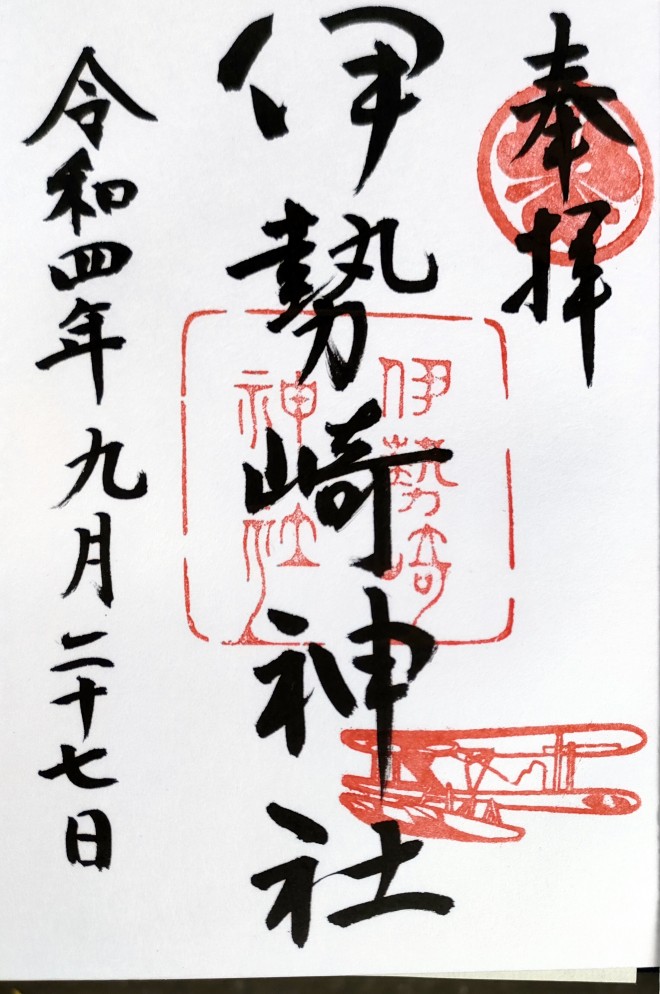 奉拝
伊勢崎神社
伊勢崎
神社
令和四年九月二十七日